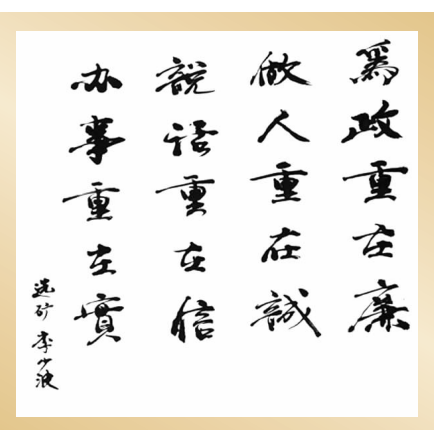 爲政重在廉
做人重在誠
說话重在信
办事重在實
选矿 李少波